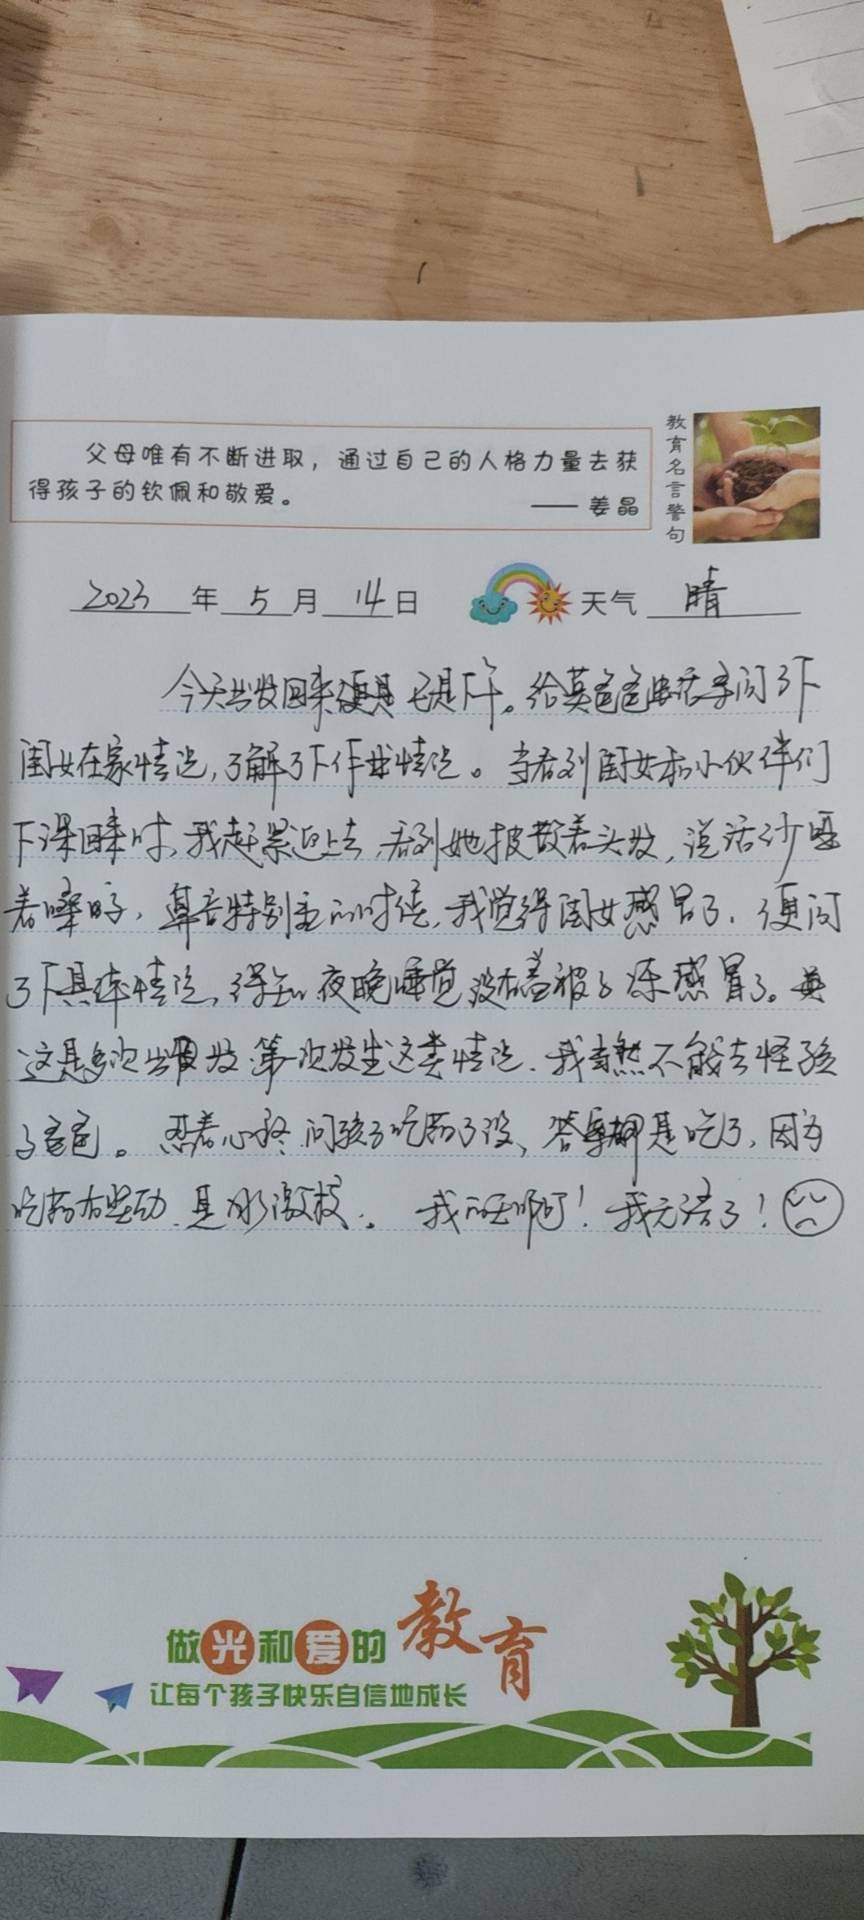 父母唯有不断进取，通过自己的人格力量去获
得孩子的钦佩和敬爱。
—— 姜晶
教育名言警句
2023年5月14日 天气 晴
今天出发回来便是已是下午。给英爸爸电话问了下
闺女在家情况，了解了下作业情况。当看到闺女和小伙伴们
下课回来时，我赶紧迎上去，看到她披散着头发，说话沙哑
着嗓子，鼻音特别重的时候，我觉得闺女感冒了，便问
了下具体情况，得知夜晚睡觉没有盖被子冻感冒了。
这是多次出发第一次发生这类情况，我当然不能去怪孩
子爸爸。忍着心疼问孩子吃药了没，答案是吃了，因为
吃药有，是冰激棱。我的天啊！我无语了！
做光和爱的教育
让每个孩子快乐自信地成长